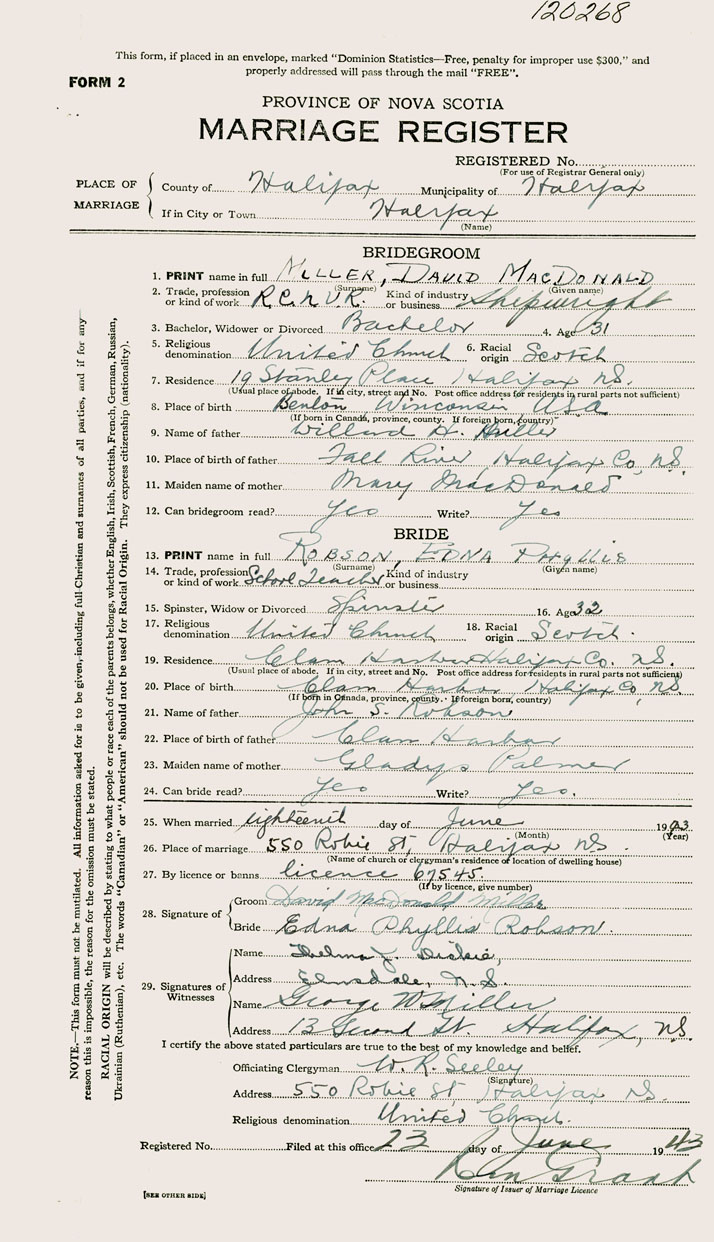 120268
This form, if placed in an envelope, marked "Dominion Statistics—Free, penalty for improper use $300," and
properly addressed will pass through the mail "FREE".
FORM 2
PROVINCE OF NOVA SCOTIA
MARRIAGE REGISTER
REGISTERED No.
(For use of Registrar General only)
PLACE OF MARRIAGE
County of Halifax Municipality of Halifax
If in City or Town Halifax
(Name)
BRIDEGROOM
1. PRINT name in full MILLER, DAVID MACDONALD
(Surname) (Given name)
2. Trade, profession or kind of work R.C.N.V.R. Kind of industry or business Shipwright
3. Bachelor, Widower or Divorced Bachelor 4. Age 31
5. Religious denomination United Church 6. Racial origin Scotch
7. Residence 19 Stanley Place Halifax N.S.
(Usual place of abode. If in city, street and No. Post office address for residents in rural parts not sufficient)
8. Place of birth Benton Winconsin, USA
(If born in Canada, province, county. If foreign born, country)
9. Name of father Willard H. Miller
10. Place of birth of father Fall River, Halifax Co, N.S.
11. Maiden name of mother Mary MacDonald
12. Can bridegroom read? Yes Write? Yes
BRIDE
13. PRINT name in full ROBSON, EDNA PHYLLIS
(Surname) (Given name)
14. Trade, profession or kind of work School Teacher Kind of industry or business
15. Spinster, Widow or Divorced Spinster 16. Age 32
17. Religious denomination United Church 18. Racial origin Scotch.
19. Residence Clam Harbor Halifax Co. N.S.
(Usual place of abode. If in city, street and No. Post office address for residents in rural parts not sufficient)
20. Place of birth Clam Harbor Halifax Co, N.S.
(If born in Canada, province, county. If foreign born, country)
21. Name of father John S. Robson
22. Place of birth of father Clam Harbor
23. Maiden name of mother Gladys Palmer
24. Can bride read? Yes Write? Yes.
25. When married eighteenth day of June 1943
(Month) (Year)
26. Place of marriage 550 Robie St, Halifax N.S.
(Name of church or clergyman's residence or location of dwelling house)
27. By licence or banns licence 67545.
(If by licence, give number)
28. Signature of
Groom David MacDonald Miller
Bride Edna Phyllis Robson.
29. Signatures of Witnesses
Name Thelma J. Dickie,
Address Elmsdale, N.S.
Name George W Miller
Address 13 Second St. Halifax, N.S.
I certify the above stated particulars are true to the best of my knowledge and belief.
Officiating Clergyman W. R. Seeley
(Signature)
Address 550 Robie St, Halifax N.S.
Religious denomination United Church.
Registered No. Filed at this office 23 day of June 1943
Grant
Signature of Issuer of Marriage Licence
[SEE OTHER SIDE]
NOTE.—This form must not be mutilated. All information asked for is to be given, including full Christian and surnames of all parties, and if for any
reason this is impossible, the reason for the omission must be stated.
RACIAL ORIGIN will be described by stating to what people or race each of the parents belongs, whether English, Irish, Scottish, French, German, Russian,
Ukrainian (Ruthenian), etc. The words "Canadian" or "American" should not be used for Racial Origin. They express citizenship (nationality).